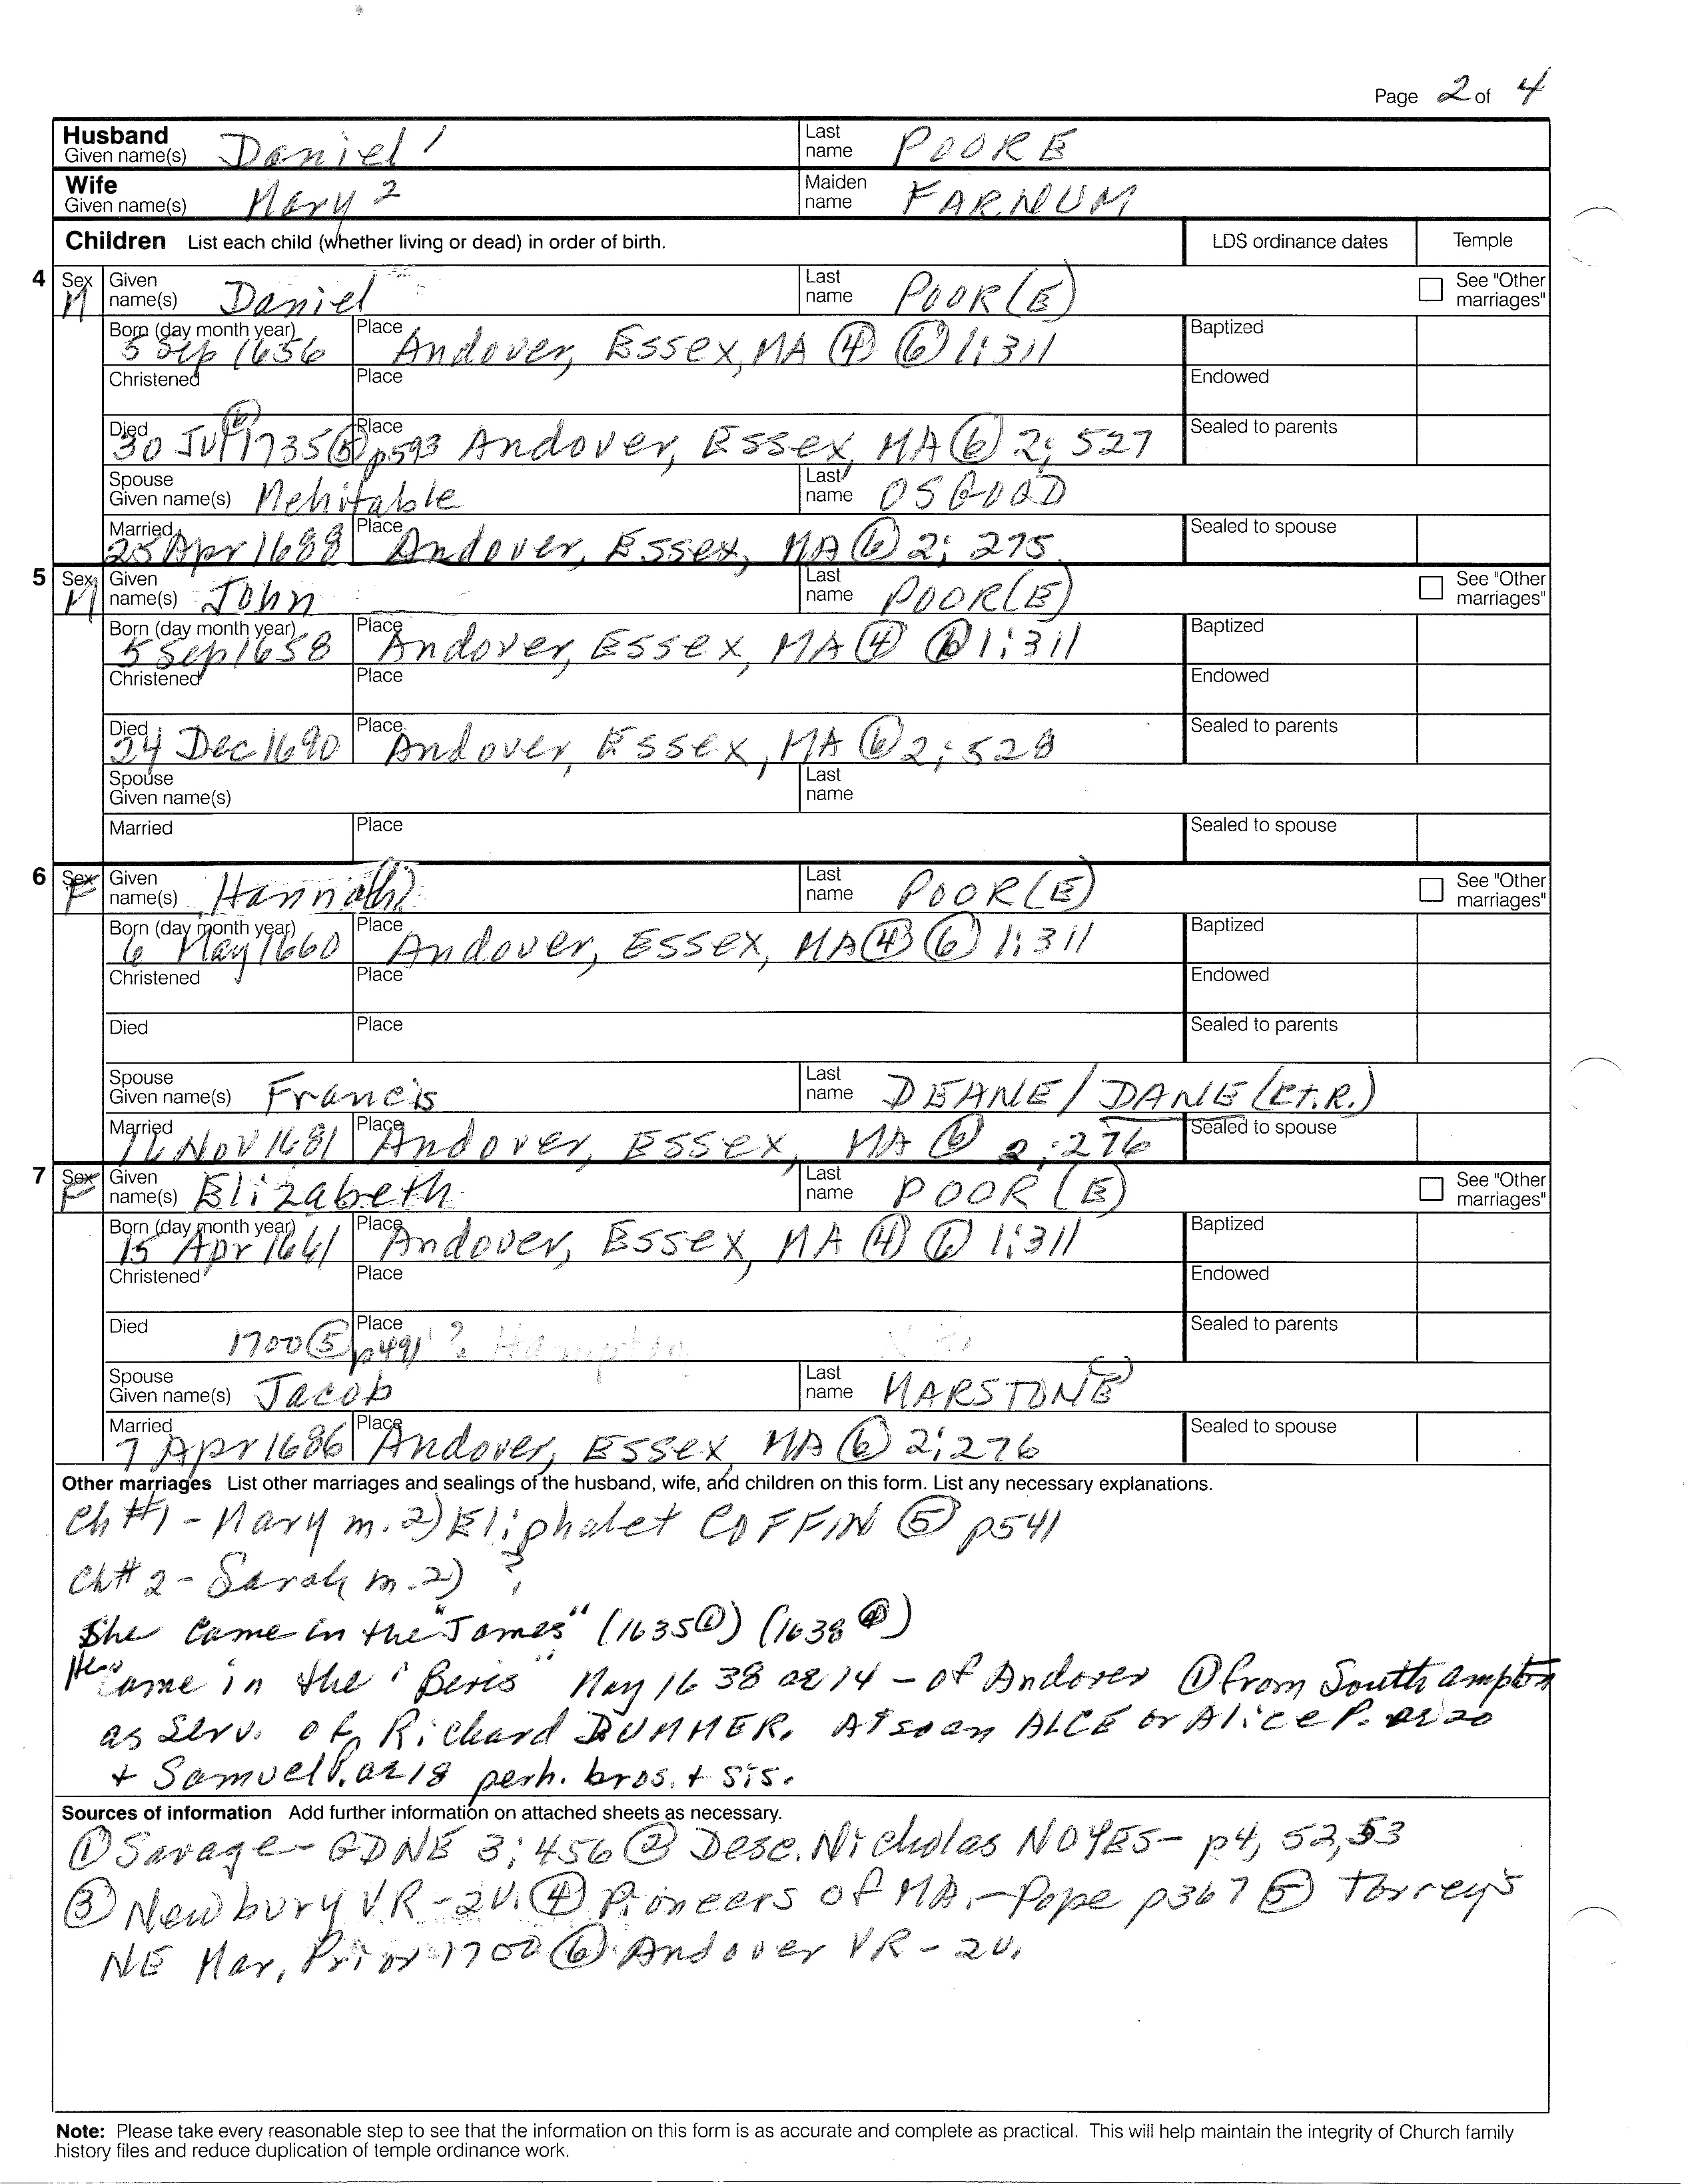 Page 2 of 4
Husband Given name(s) Daniel 1 Last name POORE
Wife Given name(s) Mary 2 Maiden name FARNUM
Children List each child (whether living or dead) in order of birth. LDS ordinance dates Temple
4 Sex M Given name(s) Daniel Last name POOR(E) See "Other marriages"
Born (day month year) 5 Sep 1656 Place Andover, Essex, MA ④ ⑥ 1:311 Baptized
Christened Place Endowed
Died 30 1735 ⑤ p593 Place Andover, Essex, MA ⑥ 2; 527 Sealed to parents
Spouse Given name(s) Mehitable Last name OSGOOD
Married 25 Apr 1688 Place Andover, Essex, MA ⑥ 2; 275 Sealed to spouse
5 Sex M Given name(s) John Last name POOR(E) See "Other marriages"
Born (day month year) 5 Sep 1658 Place Andover, Essex, MA ④ ⑥ 1:311 Baptized
Christened Place Endowed
Died 24 Dec 1690 Place Andover, Essex, MA ⑥ 2; 528 Sealed to parents
Spouse Given name(s) Last name
Married Place Sealed to spouse
6 Sex F Given name(s) Hannah Last name POOR(E) See "Other marriages"
Born (day month year) 6 May 1660 Place Andover, Essex, MA ④ ⑥ 1:311 Baptized
Christened Place Endowed
Died Place Sealed to parents
Spouse Given name(s) Francis Last name DEANE/DANE
Married 16 Nov 1681 Place Andover, Essex, MA ⑥ 2:276 Sealed to spouse
7 Sex F Given name(s) Elizabeth Last name POOR(E) See "Other marriages"
Born (day month year) 15 Apr 1661 Place Andover, Essex, MA ④ ⑥ 1:311 Baptized
Christened Place Endowed
Died 1700 ⑤ p491 Place ? Hampton Sealed to parents
Spouse Given name(s) Jacob Last name MARSTON(E)
Married 7 Apr 1686 Place Andover, Essex, MA ⑥ 2:276 Sealed to spouse
Other marriages List other marriages and sealings of the husband, wife, and children on this form. List any necessary explanations.
Ch #1 - Mary m. 2) Eliphalet COFFIN ⑤ p541
Ch# 2 - Sarah m. 2) ?
She came in the "James" (1635 ①) (1638 ④)
He came in the "Bevis" May 1638 ae 14 - of Andover ① from Southampton
as serv. of Richard DUMMER. Also an ALCE or Alice P. ae 20
+ Samuel P. ae 18 perh. bros. + sis.
Sources of information Add further information on attached sheets as necessary.
① Savage - GDNE 3; 456 ② Desc. Nicholas NOYES - p4, 52, 53
③ Newbury VR - 2v. ④ Pioneers of MA. - Pope p367 ⑤ Torrey's
NE Mar. Prior 1700 ⑥ Andover VR - 2v.
Note: Please take every reasonable step to see that the information on this form is as accurate and complete as practical. This will help maintain the integrity of Church family
history files and reduce duplication of temple ordinance work.